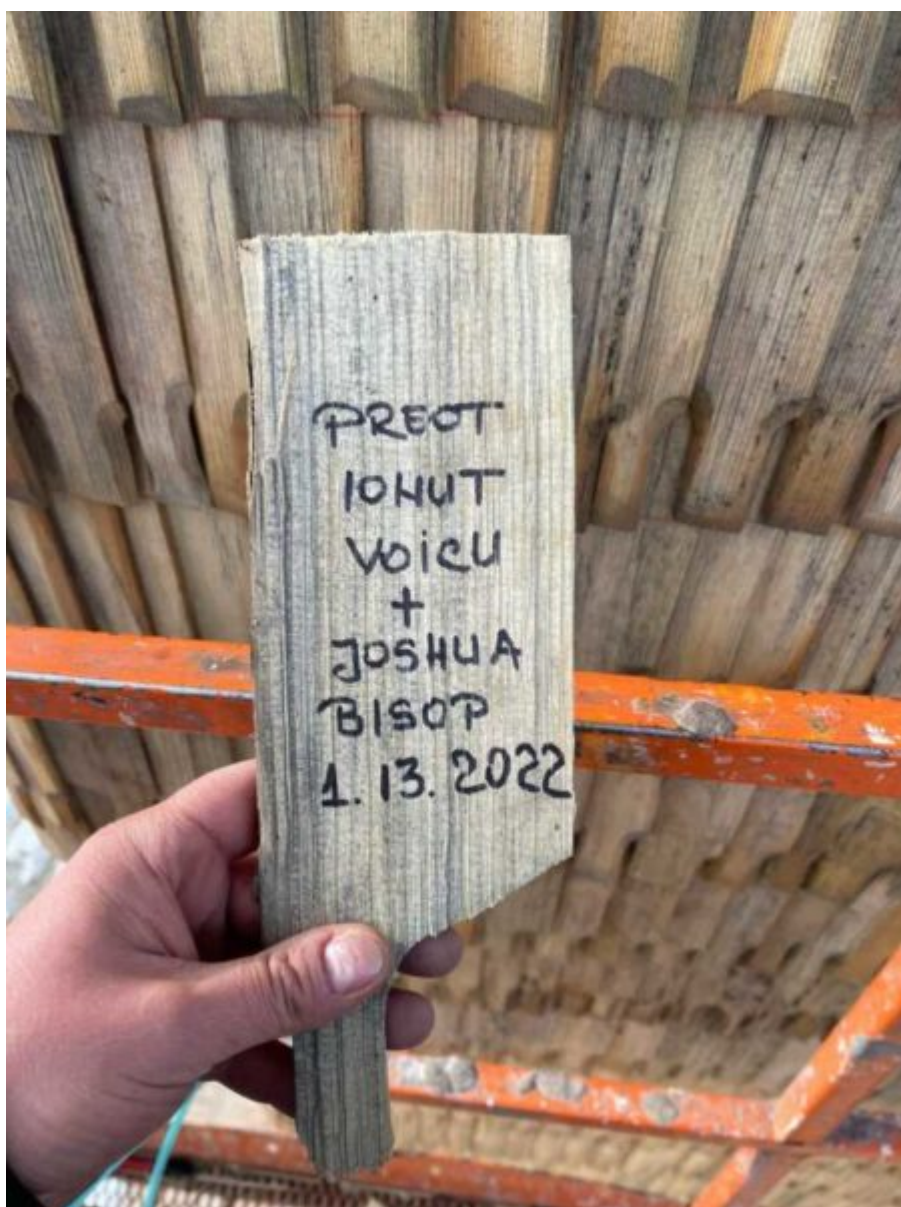 PREOT
IONUT
VOICU
+
JOSHUA
BISOP
1.13.2022